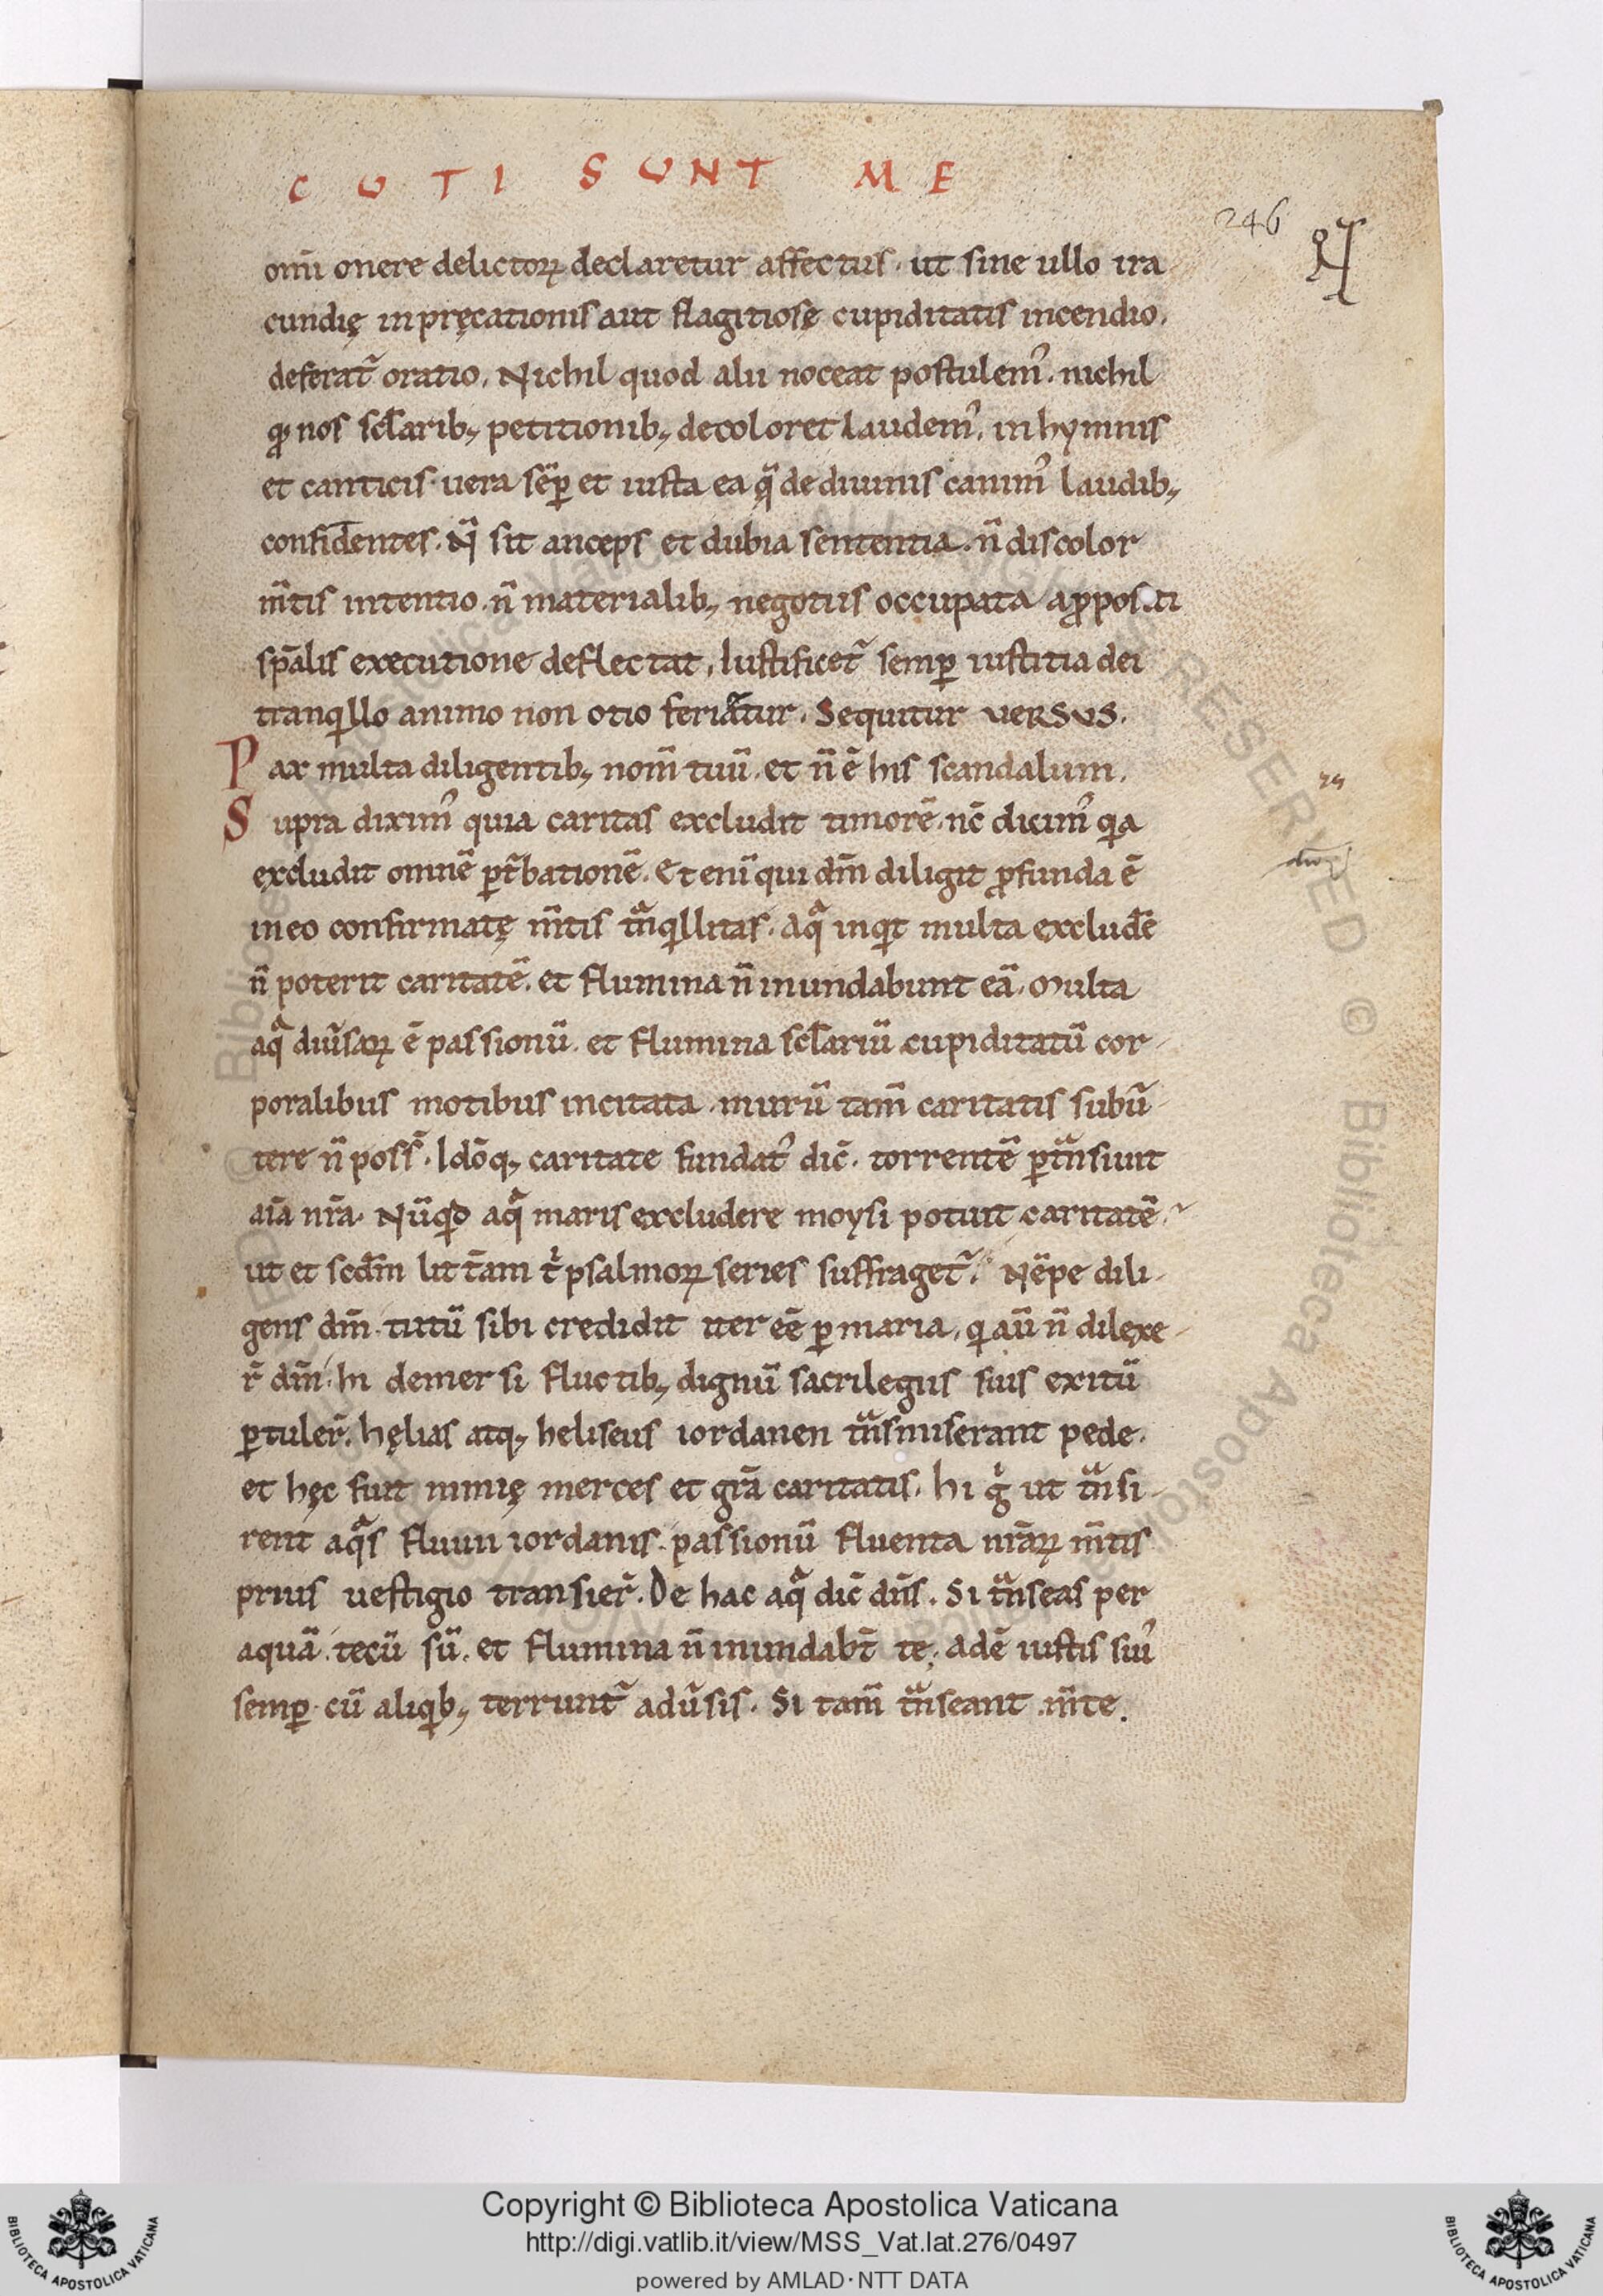 CUTI SUNT ME
246
om̄i onere delictoꝝ declaretur affectus. ut sine ullo ira
cundię inpręcationis aut flagitiosę cupiditatis incendio.
deferat᷑ oratio. Nichil quod alii noceat postulem᷒. nichil
qͥ nos scl̄arib; petitionib; decoloret laudem᷒. in hymnis
et canticis. uera sēp̱ et iusta ea q̄ de diuinis canim᷒ laudib;
confidentes. N̄ sit anceps et dubia sententia. n̄ discolor
m̄tis intentio. n̄ materialib; negotiis occupata a ꝓpositi
sp̄alis executione deflectat. Iustificet᷑ semꝑ iustitia dei
tranqͥllo animo non otio feriatur. Sequitur uersus.
Pax multa diligentib; nom̄ tuū. et n̄ ē his scandalum.
Supra dixim᷒ quia caritas excludit timorē. nc̄ dicim᷒ qͥa
excludit omnē ꝑt᷑bationē. Et enī qui dm̄ diligit ꝓfunda ē
in eo confirmatę m̄tis tͣnqͥllitas. Aqͣ inqͥt multa excludē
n̄ poterit caritatē. et flumina n̄ inundabunt eā. Multa
aqͣ diūsaꝝ ē passionū. et flumina scl̄ariū cupiditatū cor
poralibus motibus incitata. murū tam̄ caritatis subū
tere n̄ poss̄. Idōq; caritate fundat᷒ dic̄. torrentē ꝑtͣnsiuit
aīa nr̄a. Nūqͥd aqͣ maris excludere moysi potuit caritatē.
ut et scdm̄ litt̄am tͥ psalmoꝝ series suffraget᷑. Nēpe dili
gens dm̄. tutū sibi credidit iter eē ꝑ maria. qͥ aū n̄ dilexe
r̄ dm̄. hi demersi fluctib; dignū sacrilegiis suis exitū
ꝑtuler̄. hęlias atq; heliseus iordanen tͣnsmiserant pede.
et hęc fuit nimię merces et grā caritatis. hi gͥ ut tͣnsi
rent aqͣs fluuii iordanis. passionū fluenta nr̄aꝝ m̄tis
prius uestigio transier̄. De hac aqͣ dic̄ dn̄s. Si tͣnseas per
aquā. tecū sū. et flumina n̄ inundabt̄ te. adē iustis siu᷒
semꝑ. cū aliqͥb; terrunt᷑ adūsis. Si tam̄ tͣnseant m̄te.
Copyright © Biblioteca Apostolica Vaticana
http://digi.vatlib.it/view/MSS_Vat.lat.276/0497
powered by AMLAD·NTT DATA
BIBLIOTECA APOSTOLICA VATICANA
BIBLIOTECA APOSTOLICA VATICANA